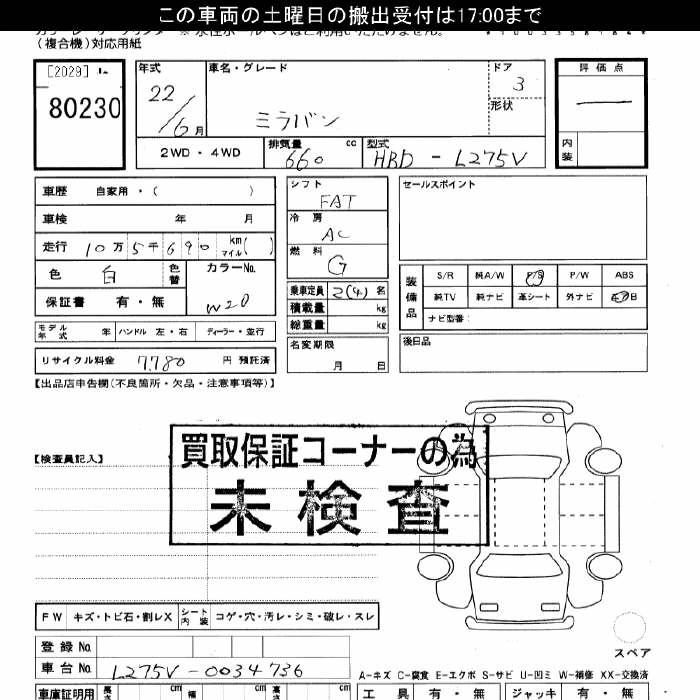 この車両の土曜日の搬出受付は17:00まで
(複合機)対応用紙
[2029]
80230
年式 22/6月
車名・グレード ミラバン
ドア 3
形状
評価点 —
内装
2WD・4WD
排気量 660 cc
型式 HBD-L275V
車歴 自家用・( )
車検 年 月
走行 10万5千690km マイル( )
色 白 色替 カラーNo. W20
保証書 有・無
モデル年式 年 ハンドル 左・右 ディーラー・並行
リサイクル料金 7780 円 預託済
シフト FAT
冷房 AC
燃料 G
乗車定員 2(4)名
積載量 kg
総重量 kg
名変期限 月 日
セールスポイント
装備品 S/R 純A/W P/S P/W ABS
純TV 純ナビ 革シート 外ナビ
ナビ型番:
後日品
【出品店申告欄(不良箇所・欠品・注意事項等)】
【検査員記入】
買取保証コーナーの為
未検査
FW キズ・トビ石・割レX シート内装 コゲ・穴・汚レ・シミ・破レ・スレ
スペア
登録No.
車台No. L275V-0034736
A-キズ C-腐食 E-エクボ S-サビ U-凹ミ W-補修 XX-交換済
車庫証明用 長さ cm 幅 cm 高さ cm
工具 有・無 ジャッキ 有・無